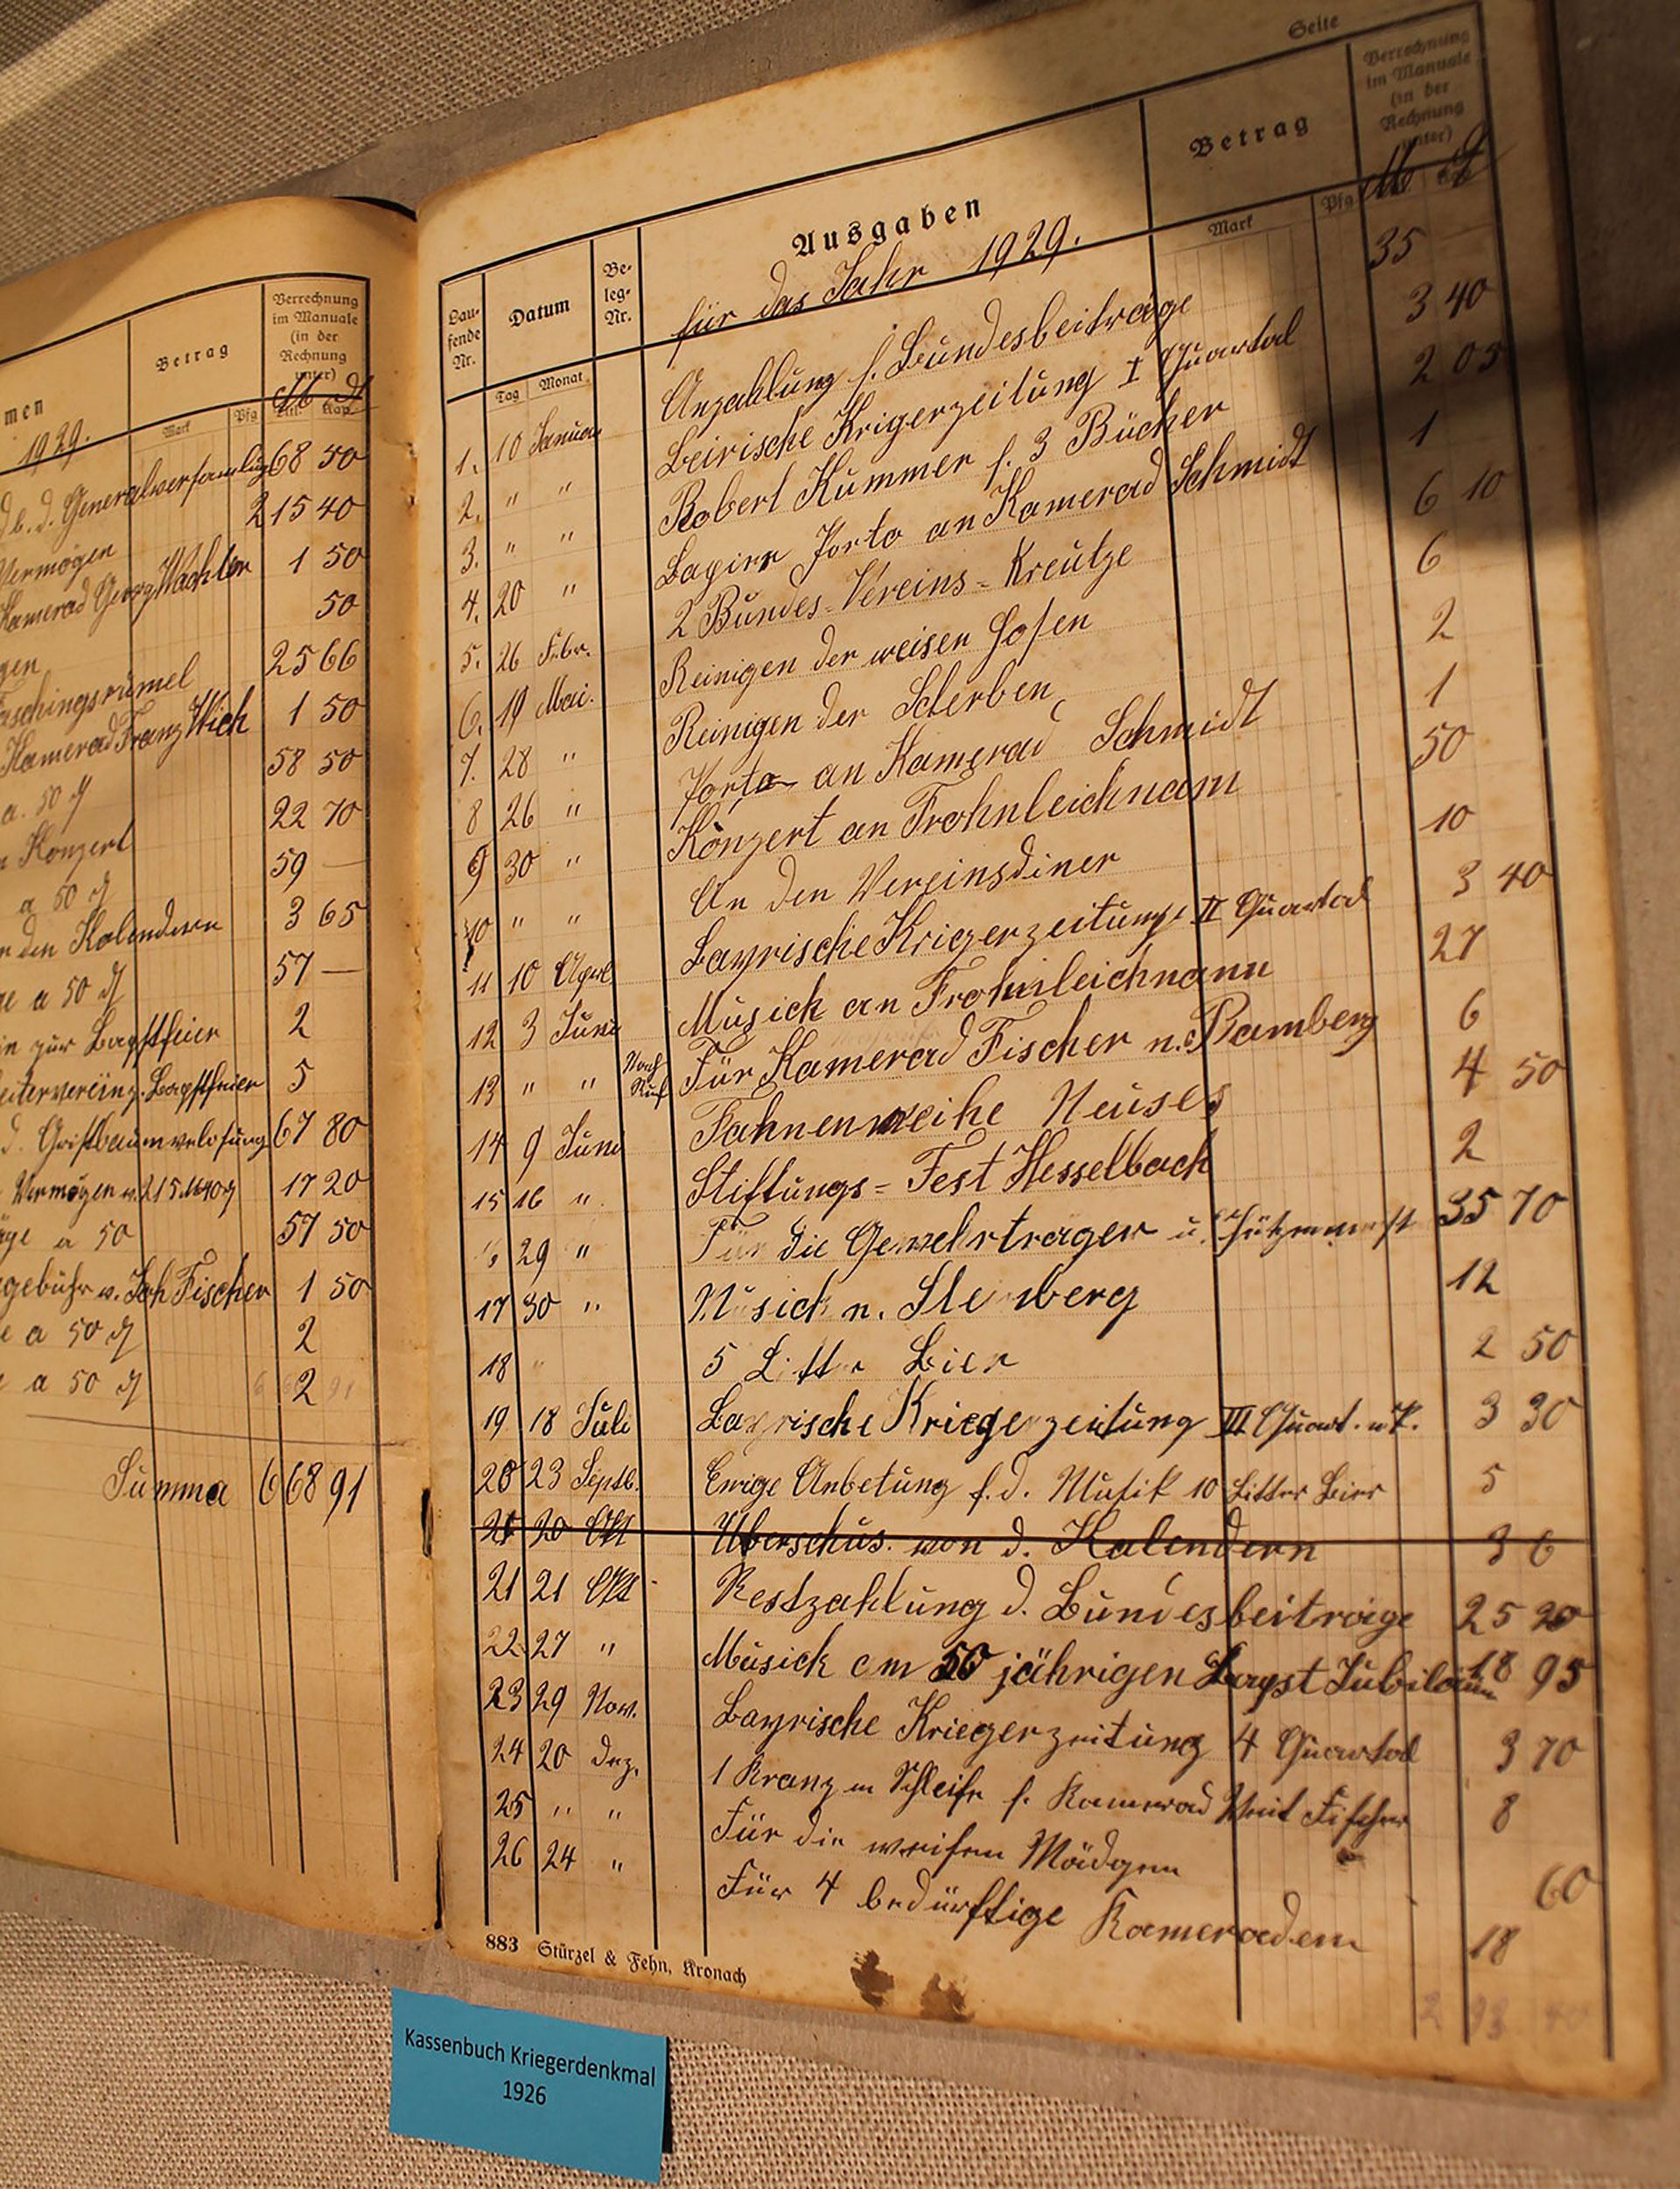 men
Betrag
Verrechnung
im Manuale
(in der
Rechnung
unter)
Mark Pfg Tit. Kap.
1929.
d. b. d. Generalversamlug 68 50
Vermögen 215 40
Kamerad Georg Wachter 1 50
gen 50
Faschingsrumel 25 66
Kamerad Franz Wich 1 50
a. 50 ₰ 58 50
Konzert 22 70
a 50 ₰ 59 —
den Kalendern 3 65
ge a 50 ₰ 57 —
in zur Bapstfeier 2
eiterverein z. Bapstfeier 5
d. Gristbaumverlosung 67 80
Vermögen v. 215 M 40 ₰ 17 20
äge a 50 57 50
gebühr v. Joh Fischer 1 50
e a 50 ₰ 2
a 50 ₰ 2
Summa 668 91
Seite
Laufende Nr.
Datum
Tag Monat
Be-
leg-
Nr.
Ausgaben
für das Jahr 1929.
Betrag
Mark Pfg
Verrechnung
im Manuale
(in der
Rechnung
unter)
M ₰
1. 10 Januar Anzahlung f. Bundesbeiträge 35
2. " " Beirische Krigerzeitung I Quartal 3 40
3. " " Robert Kummer f. 3 Bücher 2 05
4. 20 " Porto an Kamerad Schmidt 1
5. 26 Febr. 2 Bundes-Vereins-Kreutze 6 10
6. 19 Mai. Reinigen der weisen Hosen 6
7. 28 " Reinigen der Scherben 2
8 26 " Porto an Kamerad Schmidt 1
9 30 " Konzert an Frohnleichnam 50
10 " " An den Vereinsdiner 10
11 10 April Bayrische Krigerzeitung II Quartal 3 40
12 3 Juni Musick an Frohnleichnam 27
13 " " Nach Ruf Für Kamerad Fischer n. Bamberg 6
14 9 Juni Fahnenweihe Neuses 4 50
15 16 " Stiftungs-Fest Hesselbach 2
16 29 " Für die Gewehrträger u. 35 70
17 30 " Musick n. 12
18 " 5 Litter Bier 2 50
19 18 Juli Bayrische Kriegerzeitung III Quart. 3 30
20 23 Septb. Ewige Anbetung f. d. Musik 10 Litter Bier 5
21 20 Okt Überschus. von d. Kalendern 3 6
21 21 Okt Restzahlung d. Bundesbeiträge 25 20
22 27 " Musick am 50 jährigen Bapst Jubiläum 18 95
23 29 Nov. Bayrische Kriegerzeitung 4 Quartal 3 70
24 20 Dez. 1 Kranz m Schleife f. Kamerad Veit Fischer 8
25 " " Für die weisen Mädgen 60
26 24 " Für 4 bedürftige Kameraden 18
883 Stürzel & Fehn, Kronach
Kassenbuch Kriegerdenkmal
1926